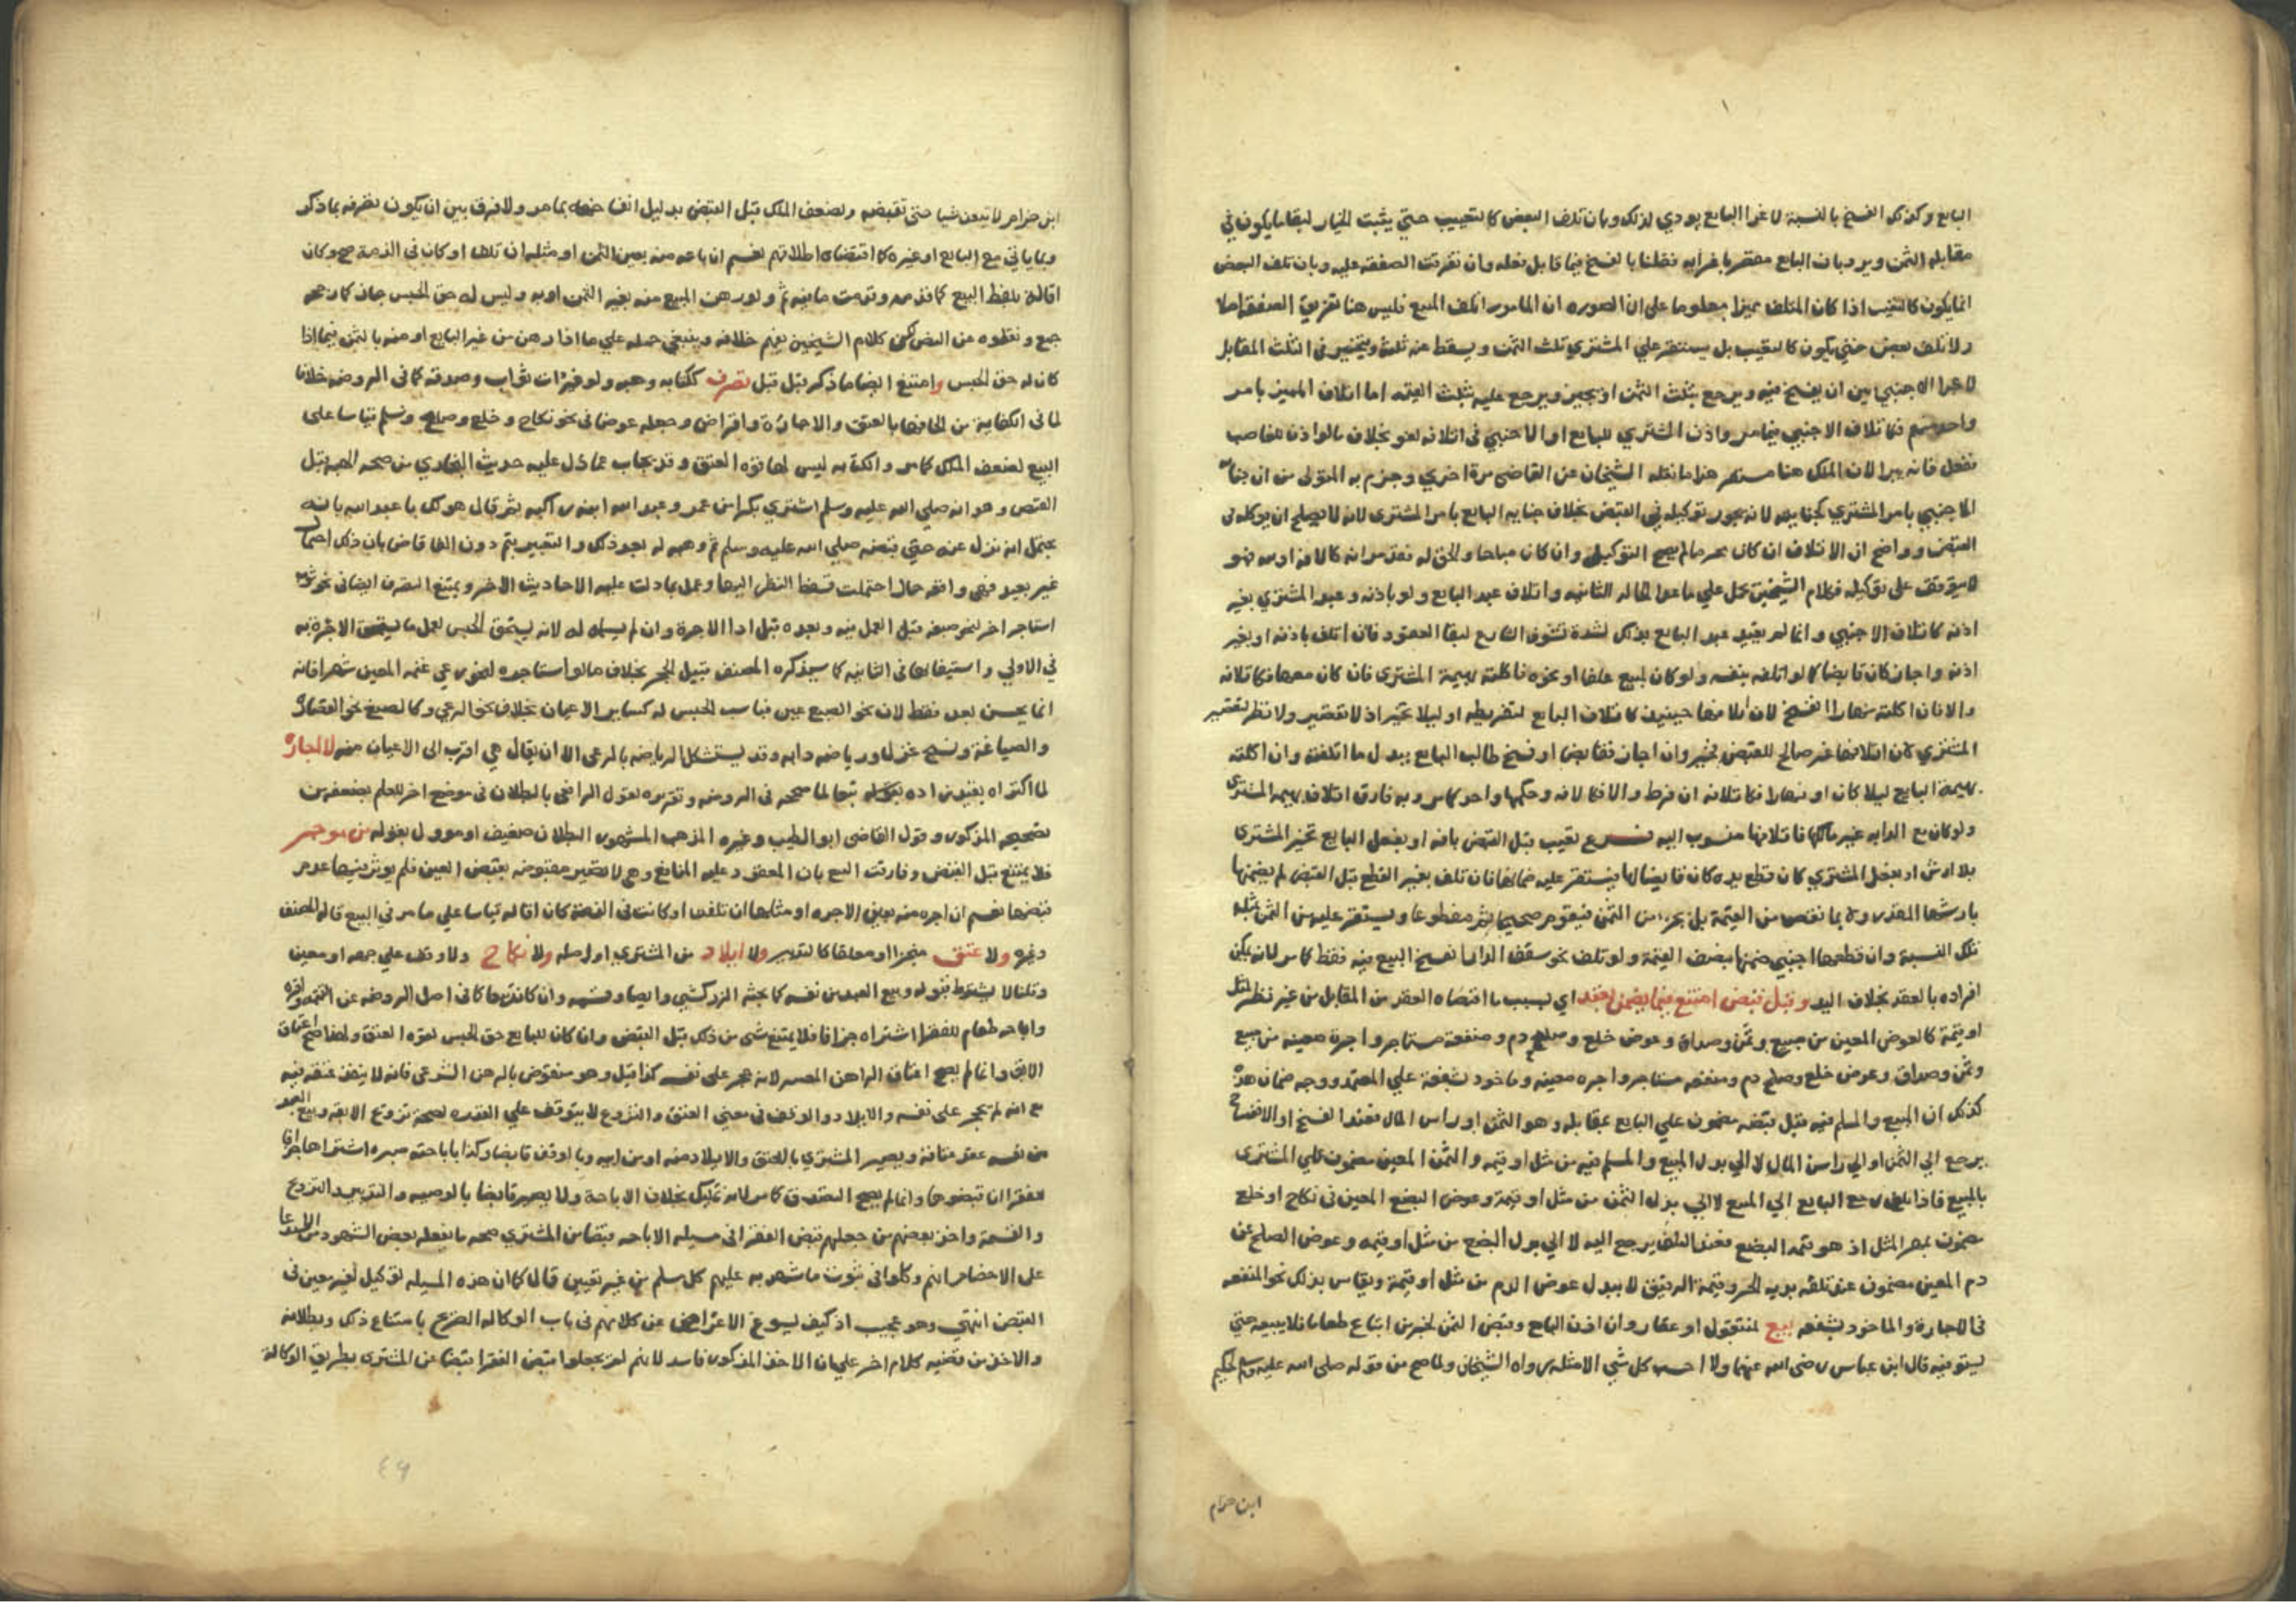 البايع وكذلك الفسخ بالنسبة لاغرا البايع يودي لذلك وبان تلف البعض كالتعييب حتي يثبت الخيار لبقا مايكون في
مقابله الثمن ويرد بان البايع مقصر باغرايه فظلنا بالفسخ فيما قابل فعله وان تفرقت الصفقه عليه وبان تلف البعض
انما يكون كالتعيب اذا كان المتلف مميزا معلوما على ان الصوره ان المامور اتلف المبيع فليس هنا تفريق الصفقة اصلا
ولا تلف بعض حتي يكون كالتعييب بل يستقر علي المشتري ثلث الثمن ويسقط عنه ثلث ويتخير في الثلث المقابل
لاغرا الاجنبي بين ان يفسخ فيه ويرجع بثلث الثمن او يجيز ويرجع عليه بثلث القيمه اما اتلاف المميز بامر
واحد منهم فكاتلاف الاجنبي فيما مر واذن المشتري للبايع او الاجنبي في اتلافه لغو بخلاف مالو اذن للغاصب
ففعل فانه يبرا لان الملك هنا مستقر هذا ما نقله الشيخان عن القاضي مرة اخري وجزم به المتولي من ان جناية
الاجنبي بامر المشتري كجنايته لانه يجوز توكيله في القبض بخلاف جناية البايع بامر المشتري لانه لا يصلح ان يوكله في
القبض وواضح ان الاتلاف ان كان محرما لم يصح التوكيل وان كان مباحا والحق له نفذ سوا كالافه ام لا فهو
لا يتوقف على توكيله فكلام الشيخين محمول علي ماعدا الحاله الثانيه واتلاف عبد البايع ولو باذنه وعبد المشتري بغير
اذنه كاتلاف الاجنبي وانما لم يقيد عبد البايع بذلك لشدة تشوف الشارع لبقا العقود فان اتلف باذنه او بغير
اذنه واجاز كان قابضا كما لو اتلفه بنفسه ولو كان المبيع علفا او نحوه فاكلته بهيمة المشتري فان كان معها فكاتلافه
والا فان اكلته نهارا انفسخ لان اتلافها حينيذ كاتلاف البايع لتفريطه او ليلا تخير اذ لا تقصير ولا نظر لتقصير
المشتري لان اتلافها غير صالح للقبض فخير وان اجاز فقابض او فسخ طالبه البايع ببدل ما اتلفته وان اكلته
بهيمة البايع ليلا كان او نهارا فكاتلافه ان فرط والا فكالافة وحكمها واحد كما مر وبه فارق اتلاف بهيمة المشتري
ولو كان مع الدابه غير مالكها فاتلافها منسوب اليه فرع تعيب قبل القبض بافه او بفعل البايع تخير المشتري
بلا ارش او بفعل المشتري كان قطع يده كان قابضا لها فيستقر عليه ضمانها فان تلف بغير القطع قبل القبض لم يضمنها
بارشها المقدر ولا بما نقص من القيمة بل بجزء من الثمن فيقوم صحيحا ثم مقطوعا ويستقر عليه من الثمن بمثل
تلك النسبة وان قطعها اجنبي ضمنها بنصف القيمة ولو تلف نحو سقف الدار انفسخ البيع فيه فقط كما مر لانه يمكن
افراده بالعقد بخلاف اليد وقبل قبض امتنع فيما يضمن بعقد اي بسبب ما اقتضاه العقد من المقابل من غير نظر لمثل
او قيمة كالعوض المعين من مبيع وثمن وصداق وعوض خلع وصلح دم ومنفعة مستاجر واجرة معينه من مبيع
وثمن وصداق وعوض خلع وصلح دم ومنفعه مستاجر واجره معينه وماخود بشفعة علي المعتمد ووجه ضمان هذه
كذلك ان المبيع والمسلم فيه قبل قبضه مضمون علي البايع بمقابله وهو الثمن او راس المال فعند الفسخ او الانفساخ
يرجع الي الثمن او الي راس المال لا الي بدل المبيع والمسلم فيه من مثل او قيمه والثمن المعين مضمون علي المشتري
بالمبيع فاذا تلف رجع البايع الي المبيع لا الي بدل الثمن من مثل او قيمة وعوض البضع المعين في نكاح او خلع
مضمون بمهر المثل اذ هو قيمة البضع فعند التلف يرجع اليه لا الي بدل البضع من مثل او قيمه وعوض الصلح عن
دم المعين مضمون عند تلفه بدية الحر وقيمة الرقيق لا ببدل عوض الدم من مثل او قيمة ويقاس بذلك نحو المنفعه
في الاجارة والماخود بشفعه بيع لمنتقول او عقار وان اذن البايع وقبض الثمن لخبر من ابتاع طعاما فلا يبيعه حتي
يستوفيه قال ابن عباس رضي الله عنهما ولا احسب كل شي الا مثله رواه الشيخان ولما صح من قوله صلى الله عليه وسلم لحكيم
ابن حزام
ابن حزام لا تبيعن شيا حتى تقبضه ولضعف الملك قبل القبض بدليل انفساخه بما مر ولا فرق بين ان يكون تصرفه بما ذكر
وبما ياتي مع البايع او غيره كما اقتضاه اطلاقهم نعم ان باعه منه بعين الثمن او مثله ان تلف او كان في الذمة صح وكان
اقالة بلفظ البيع كما قدمه وقدمت ما فيه ثم ولو رهن المبيع منه بغير الثمن او به وليس له حق الحبس جاز كما رجحه
جمع ونقلوه عن النص لكن كلام الشيخين يفهم خلافه وينبغي حمله علي ما اذا رهن من غير البايع او منه بالثمن فيما اذا
كان له حق الحبس وامتنع ايضا ما ذكر قبل قبل تصرف ككتابه وهبه ولو في ذات ثواب وصدقه كما في الروضه خلافا
لما في الكفاية من الحاقها بالعتق والاجارة واقراض وجعله عوضا في نحو نكاح وخلع وصلح وسلم قياسا على
البيع لضعف الملك كما مر والكتابه ليس لها قوة العتق وقد يجاب عما دل عليه حديث البخاري من صحه الهبه قبل
القبض وهو انه صلي الله عليه وسلم اشتري بكرا من عمر وعبد الله ابنه راكبه ثم قال هو لك يا عبد الله بانه
يحتمل انه نزل عنه حتي قبضه صلي الله عليه وسلم ثم وهبه له بعد ذلك والتعبير بثم دون الفا قاض بان ذلك احتمال
غير بعيد فهي واقعه حال احتملت فسقط النظر اليها وعمل بما دلت عليه الاحاديث الاخر ويمتنع التصرف ايضا في نحو ثوب
استاجر اخر لنحو صبغه قبل العمل فيه وبعده قبل ادا الاجرة وان لم يسلمه له لانه يستحق الحبس لعمل ما يستحق الاجرة به
في الاولي واستيفائها في الثانيه كما سيذكره المصنف قبيل الحجر بخلاف مالو استاجره لنحو رعي غنمه المعين شهرا فانه
انما يحسن بعد فقط لان نحو الصبغ عين فناسب الحبس له كساير الاعيان بخلاف نحو الرعي وكالصبغ نحو القصارة
والصياغة ونسج غزل ورياضه دابه وقد يستشكل الرياضه بالرعي الا ان يقال هي اقرب الى الاعيان منه لا اجارة
لما اكتراه تبعا لما صححه في الروضه وتقريره لقول الرافعي بالبطلان في موضع اخر للعلم بضعفه من
تصحيحه المذكور وقول القاضي ابو الطيب وغيره المذهب المشهور البطلان ضعيف او موول بقوله من موجر
فلا يمتنع قبل القبض وفارقت البيع بان المعقود عليه المنافع وهي لا تصير مقبوضه بقبض العين فلم يوثر فيها عدم
قبضها نعم ان اجره منه بعين الاجره او مثلها ان تلفت او كانت في الذمة كان اقاله قياسا علي ما مر في البيع قاله المصنف
وغيره ولا عتق منجزا او معلقا كالتدبير ولا ايلاد من المشتري او اصله ولا نكاح ولا وقف علي جهه او معين
وقلنا لا يشترط قبوله وبيع العبد من نفسه كما بحثه الزركشي وايصا وقسمه وان كانت بيعا كما في اصل الروضه عن التتمه واقره
واباحه طعام للفقرا اشتراه جزافا فلا يمتنع شي من ذلك قبل القبض وان كان للبايع حق الحبس لقوه العتق ولهذا صح اعتاق
الابق وانما لم يصح اعتاق الراهن المعسر لانه حجر على نفسه كذا قيل وهو منقوض بالرهن الشرعي فانه لا ينفذ عتقه فيه
مع انه لم يحجر على نفسه والايلاد والوقف في معني العتق والتزويج لا يتوقف علي القدره لصحة تزويج الابقه وبيع العبد
من نفسه عقد عتاقة ويصير المشتري بالعتق والايلاد منه او من ابيه وبالوقف قابضا وكذا باباحته صبره اشتراها جزافا
لفقرا ان قبضوها وانما لم يصح التصدق كما مر لانه تمليك بخلاف الاباحة ولا يصير قابضا بالوصيه والتدبير والتزويج
والقسمة واخذ بعضهم من جعلهم قبض الفقرا في مسيله الاباحه قبضا من المشتري صحه ما يفعله بعض الشهود من الادعا
علي الاخصام انهم وكلوا في ثبوت ما شهد به عليهم كل مسلم من غير تعيين قال لكان هذه المسيله توكيل لغير معين في
القبض انتهي وهو عجيب اذ كيف يسوغ الاعتراض عن كلامهم في باب الوكاله الصريح بامتناع ذلك وبطلانه
والاخذ من قضيه كلام اخر علي ان الاخذ المذكور فاسد لانهم لم يجعلوا قبض الفقرا قبضا عن المشتري بطريق الوكالة
٤٩